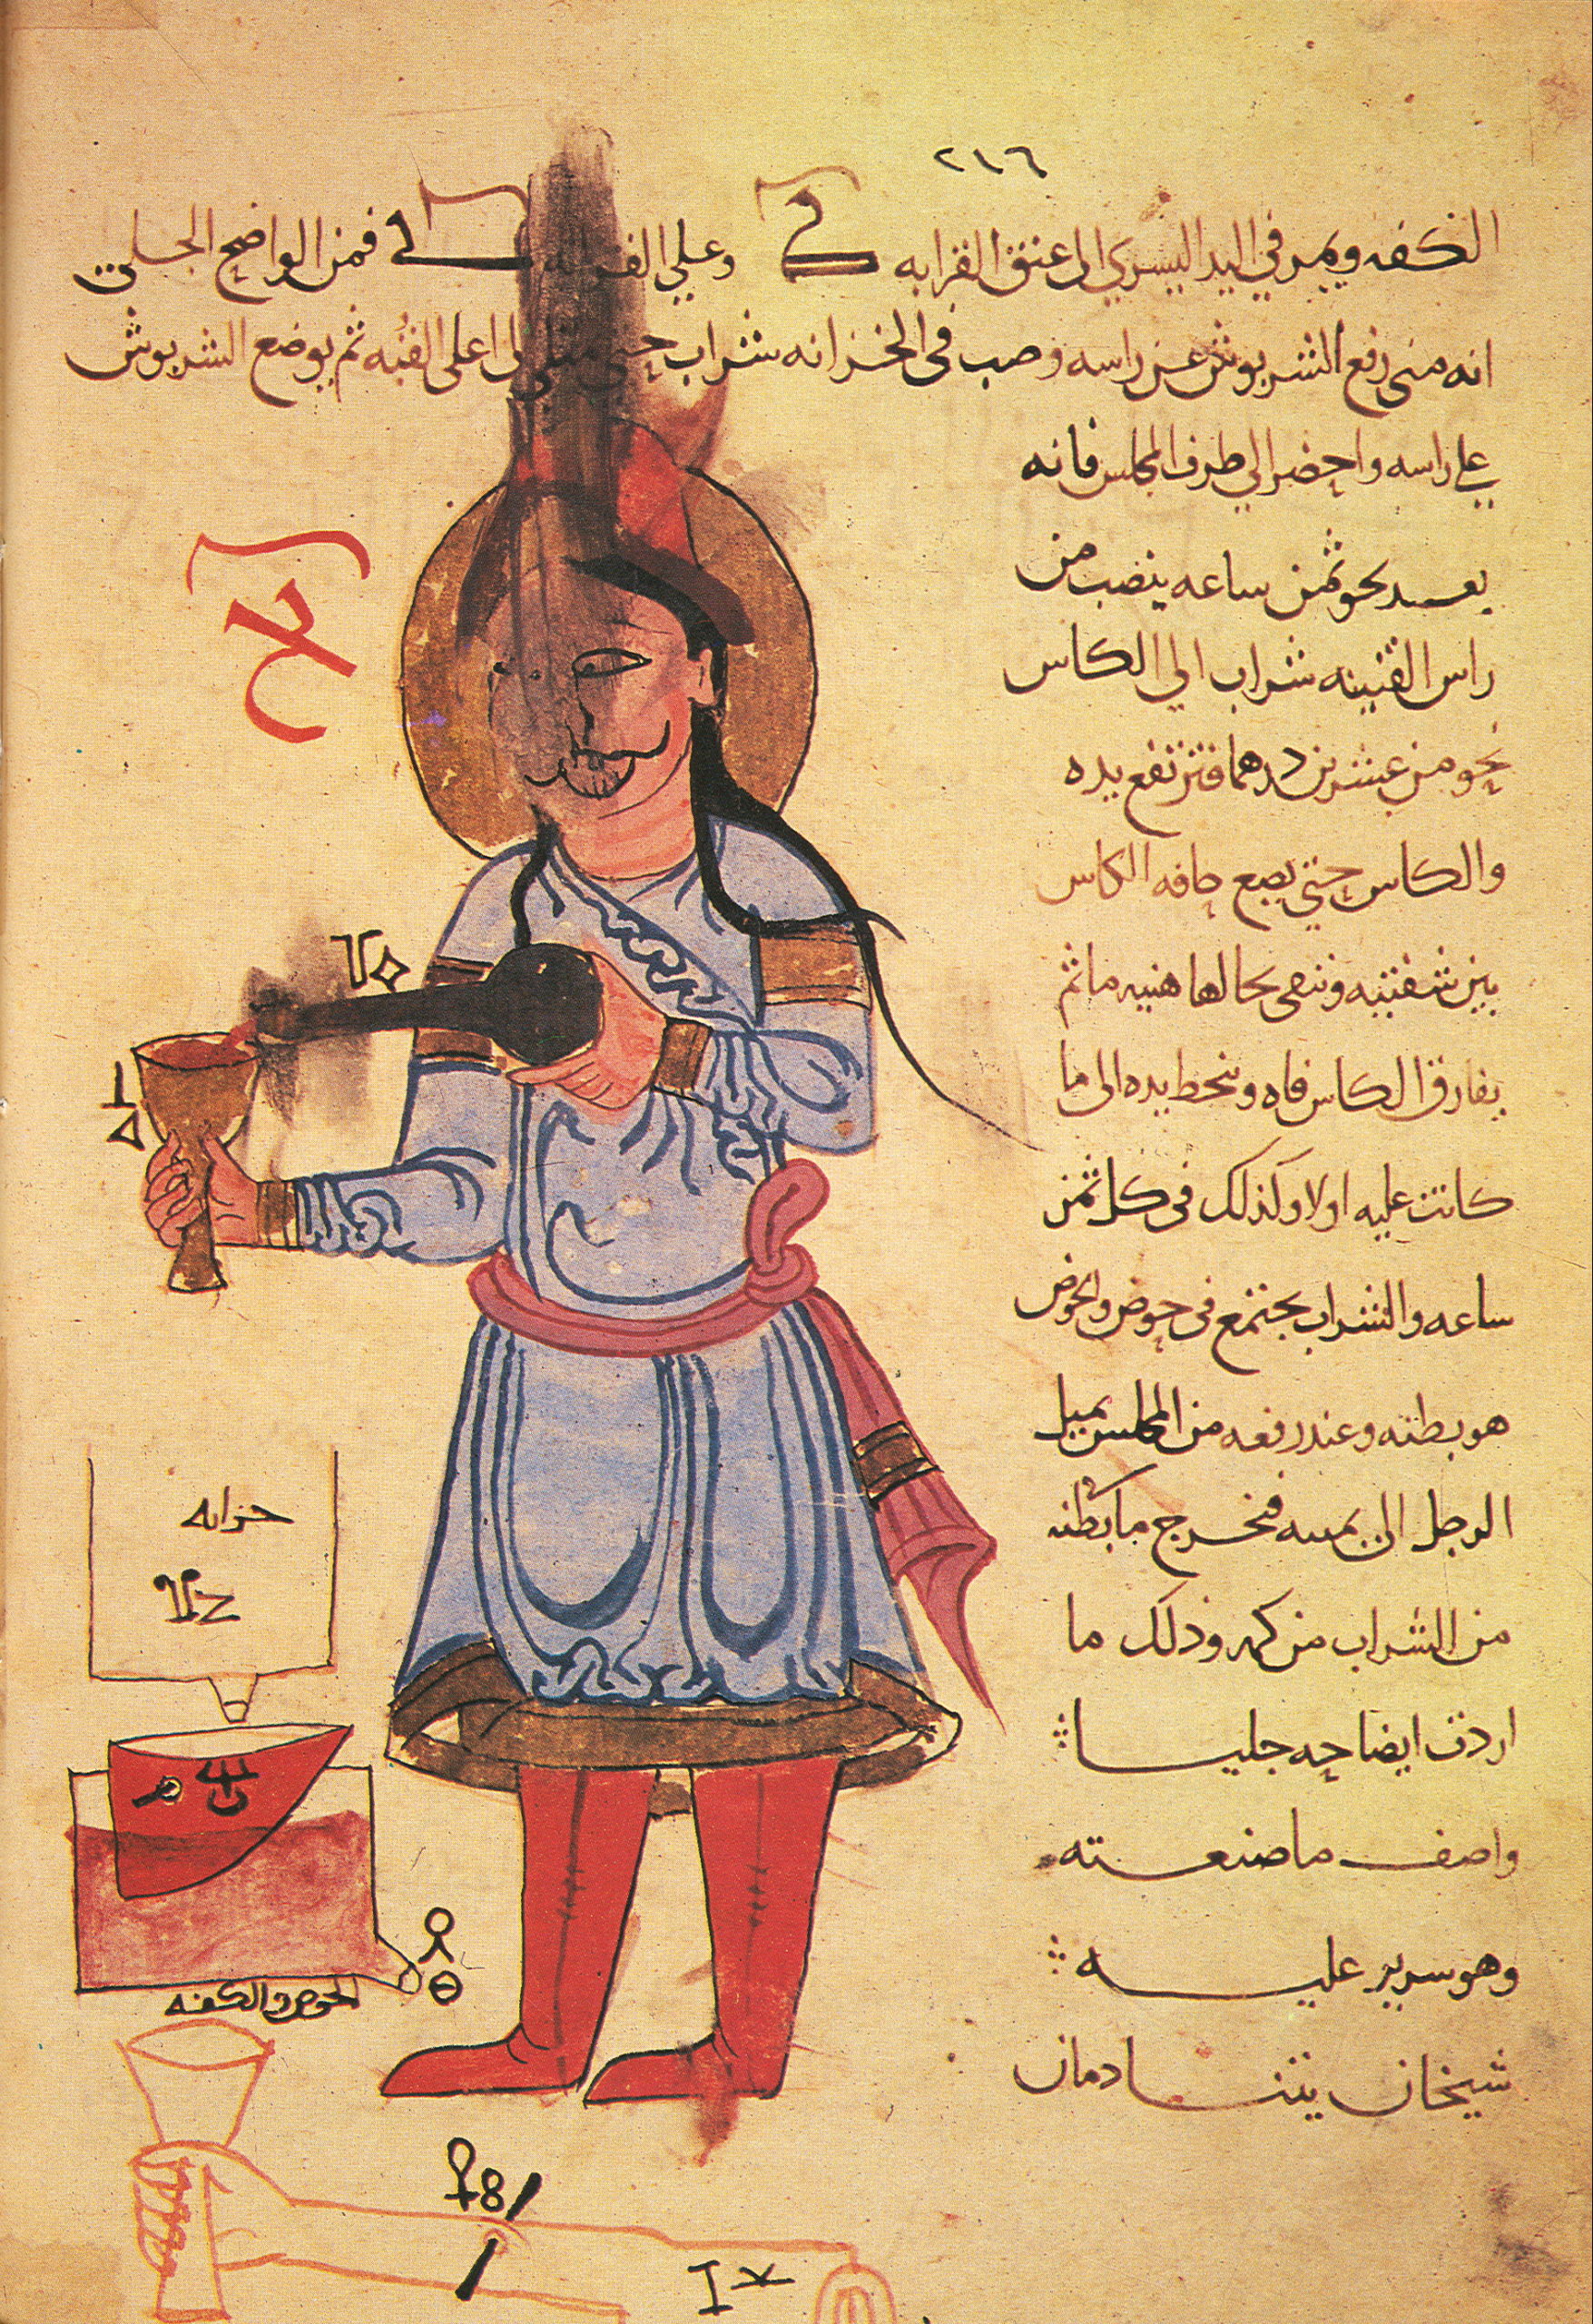 ٢١٦
الكفه ويمر في اليد اليسري الى عنق القرابه وعلي فمن الواضح الجلي
انه متى رفع الشربوش عن راسه وصب في الخزانه شراب حتى الى اعلى القبه ثم يوضع الشربوش
علي راسه واحضر الي طرف المجلس فانه
بعد نحو ثمن ساعه ينصب من
راس القنينه شراب الي الكاس
نحو من عشرين درهما فترتفع يده
والكاس حتى يضع حافه الكاس
بين شفتيه وتبقى بحالها هنيه ما ثم
يفارق الكاس فاه وينحط يده الى ما
كانت عليه اولا وكذلك في كل ثمن
ساعه والشراب يجتمع في حوض والحوض
هو بطنه وعند رفعه من المجلس يميل
الرجل الى يمينه فيخرج ما بطنه
من الشراب من كمه وذلك ما
اردت ايضاحه جليا
واصف ما صنعته
وهو سرير عليه
شيخان يتنادمان
خزانه
الحوض والكفه